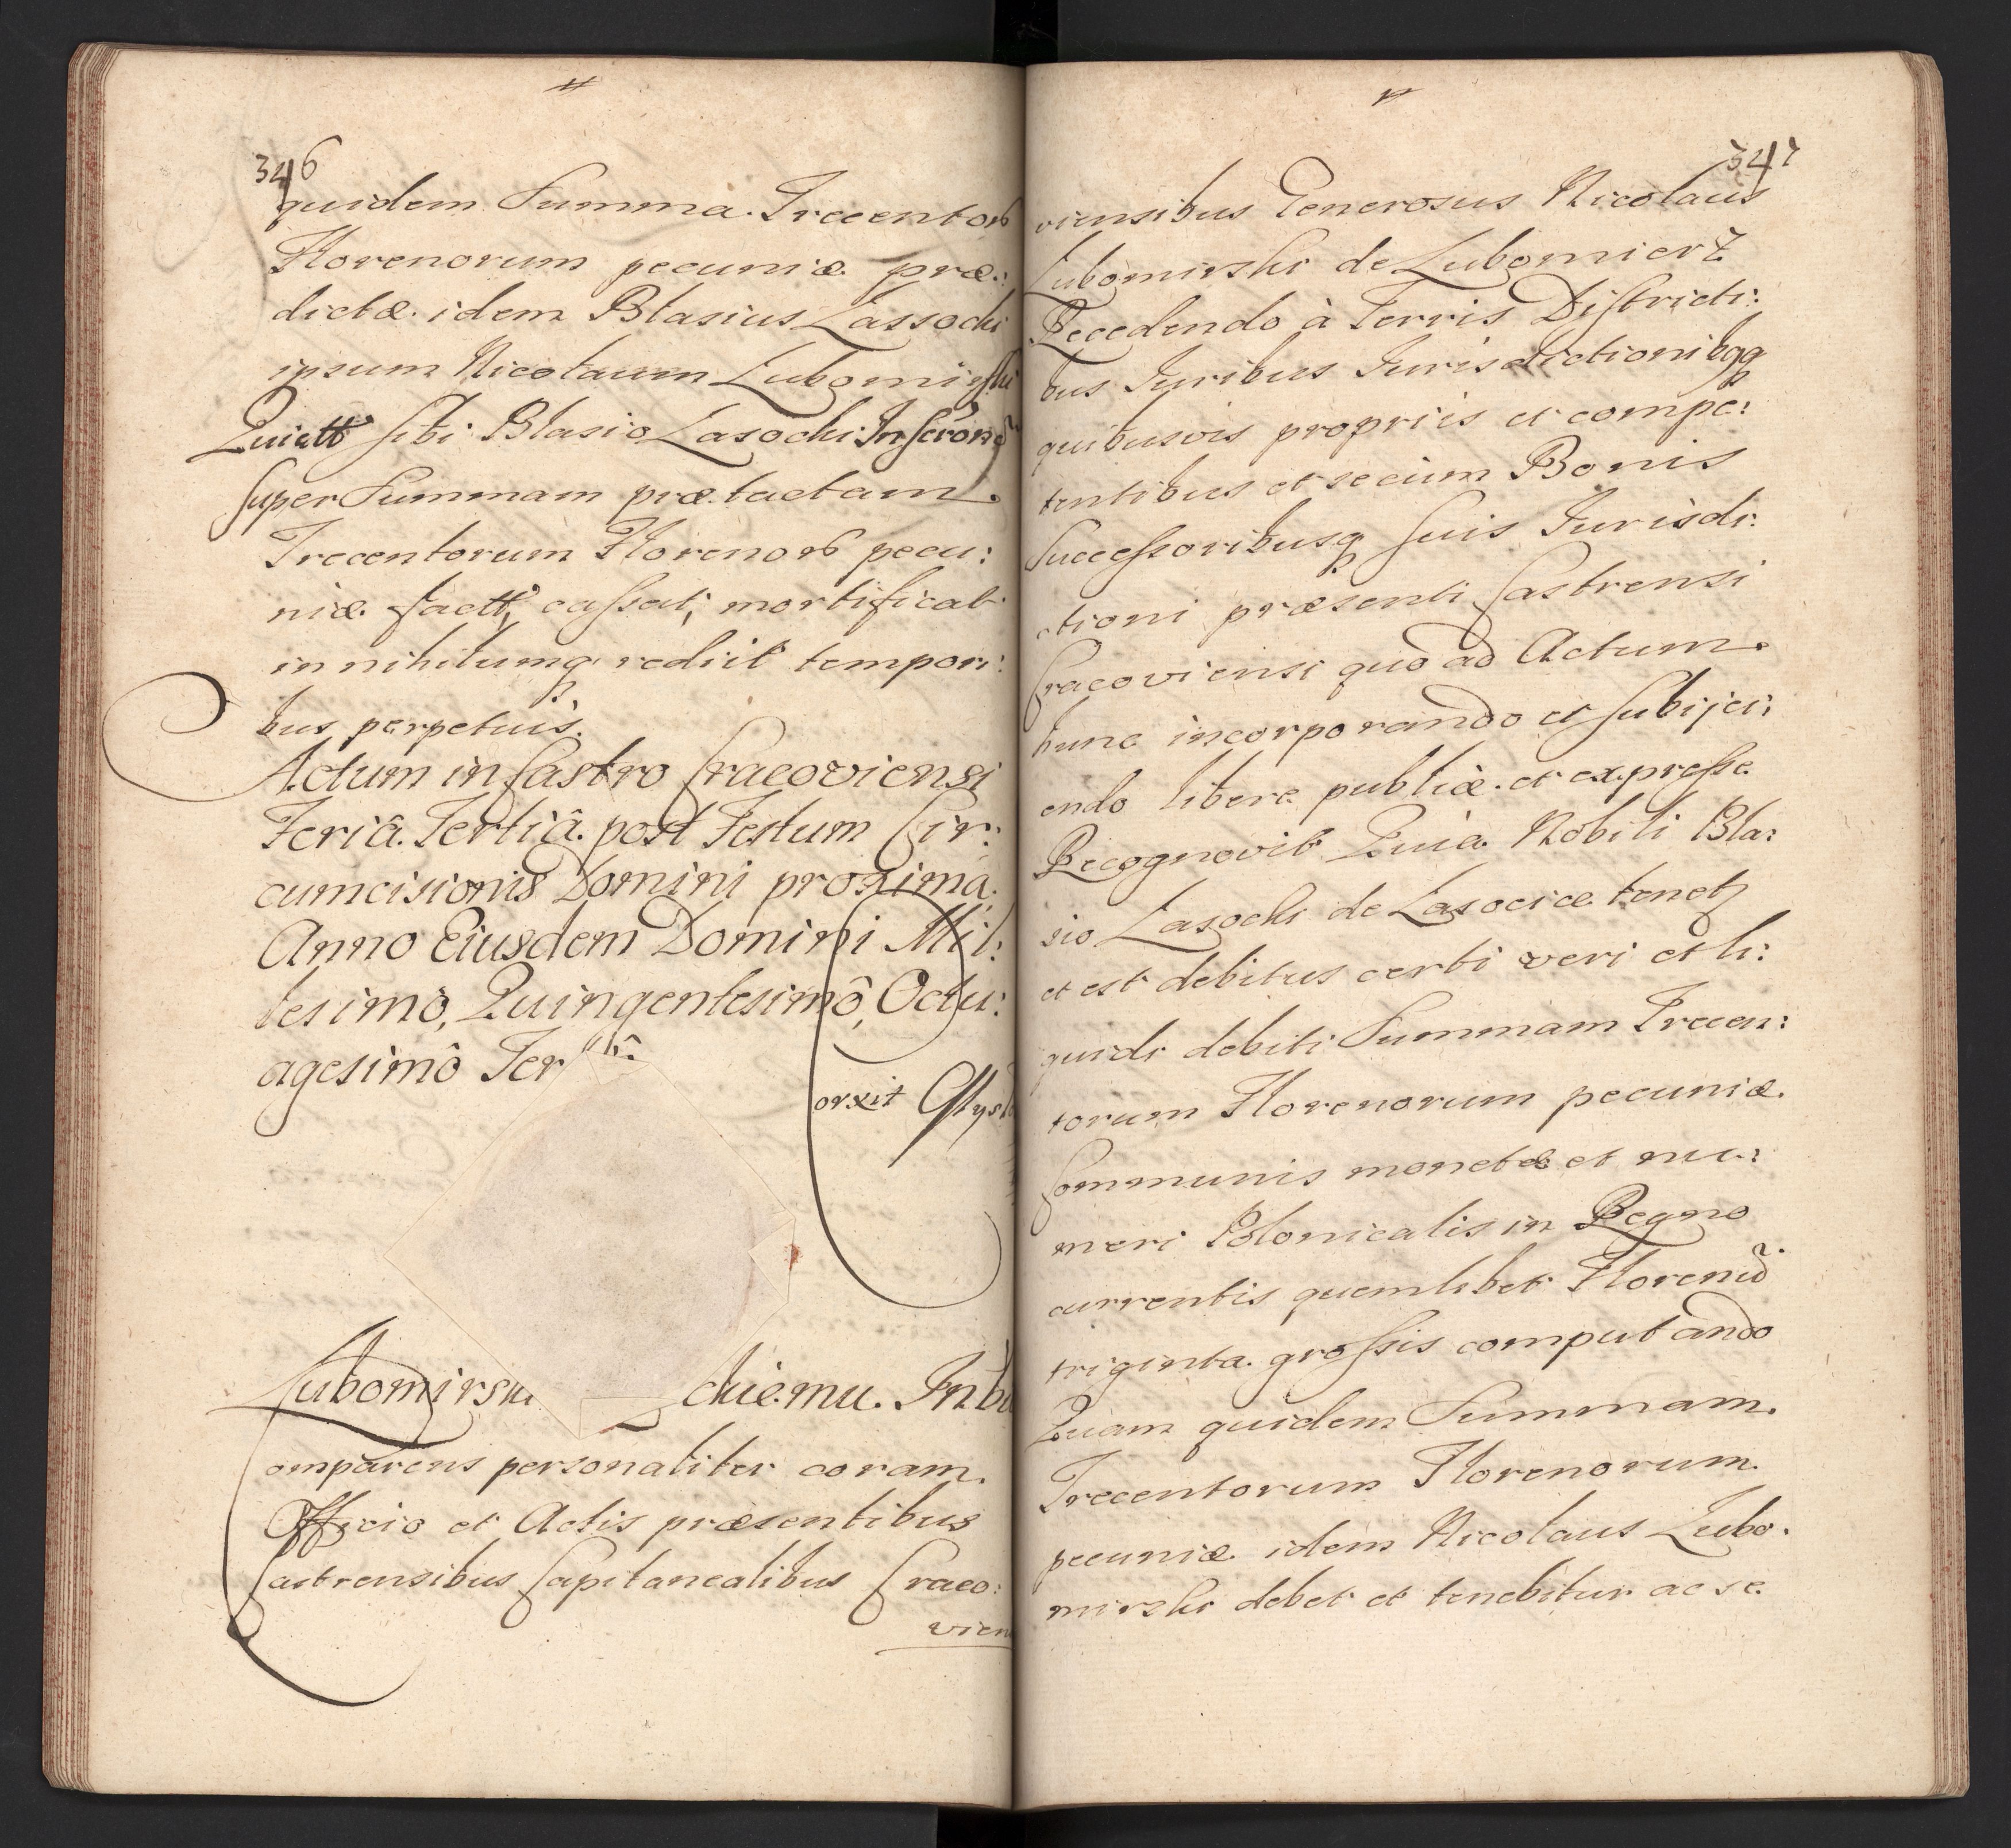 346
quidem Summa Trecentor
Florenorum pecuniæ præ:
dictæ idem Blasius Lassocki
ipsum Nicolaum Lubomirski
Quiett sibi Blasio Lasocki
super Summam prætactam
Trecentorum Florenor pecu:
niæ factt, cassat, mortificat
in nihilumq redüt tempori:
bus perpetuis.
Actum in Castro Cracoviensi
Feriâ Tertiâ post Festum Cir:
cumcisionis Domini proximâ
Anno Eiusdem Domini Mil:
lesimô, Quingentesimô, Octu:
agesimô Ter
orxit
Lubomirski chiemu. Inbu
omparens personaliter coram
Officio et Actis præsentibus
Castrensibus Capitanealibus Craco:
vien
347
viensibus Generosus Nicolaus
Lubomirski de Lubomierz
Recedendo à Terris Districti:
bus Iuribus Iurisdictionibqq
quibusvis propriis et compe:
tentibus et secum Bonis
Successoribusq suis Iurisdi:
ctioni præsenti Castrensi
Cracoviensi quo ad Actum
hunc incorporando et subijci:
endo libere publicæ et expresse
Recognovit Quia Nobili Bla:
sio Lasocki de Lasocicæ tenet
et est debitus certi veri et li:
quidi debiti Summam Trecen:
torum Florenorum pecuniæ
Communis monetæ et nu:
meri Polonicalis in Regno
currentis quemlibet Florenū
triginta grossis computando
Quam quidem Summam
Trecentorum Florenorum
pecuniæ idem Nicolaus Lubo:
mirski debet et tenebitur ac se